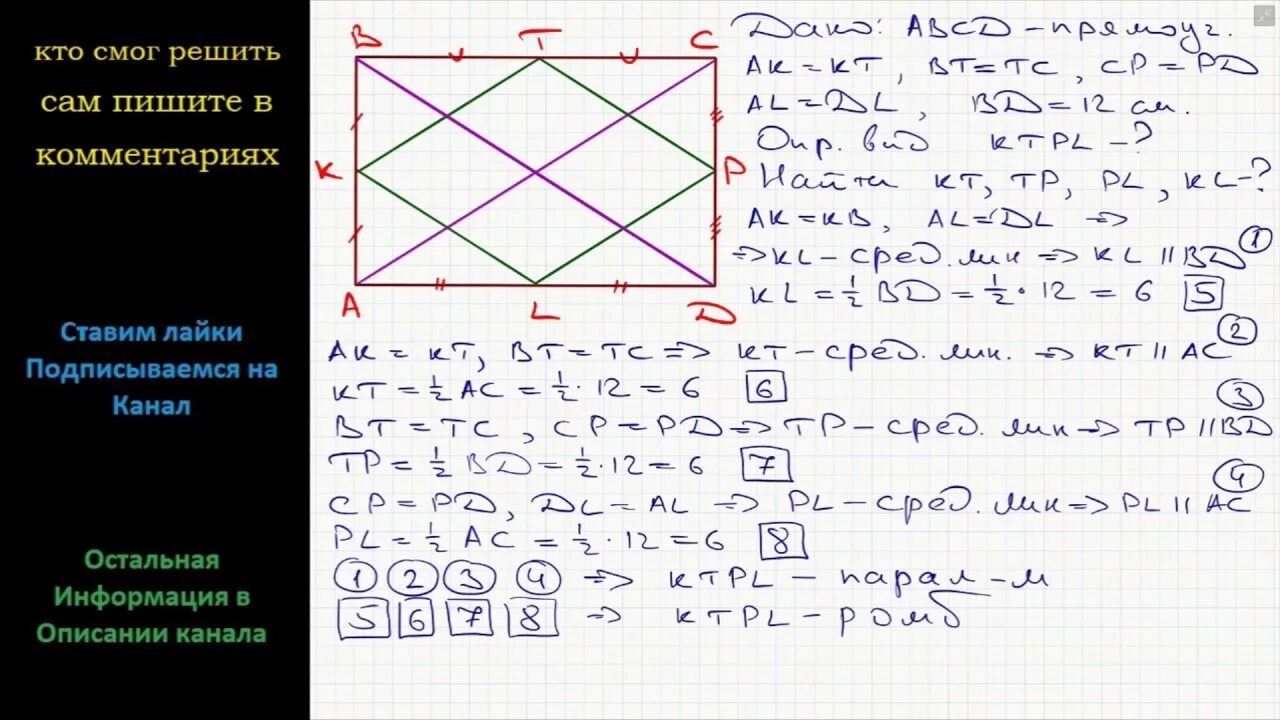 кто смог решить
сам пишите в
комментариях
Ставим лайки
Подписываемся на
Канал
Остальная
Информация в
Описании канала
B T C
K P
A L D
Дано: ABCD – прямоуг.
AK = KT, BT = TC, CP = PD
AL = DL, BD = 12 см.
Опр. вид KTPL – ?
Найти KT, TP, PL, KL – ?
AK = KB, AL = DL ⇒
⇒ KL – сред. лин ⇒ KL || BD ①
KL = ½ BD = ½ · 12 = 6 [5]
AK = KT, BT = TC ⇒ KT – сред. лин. ⇒ KT || AC ②
KT = ½ AC = ½ · 12 = 6 [6]
BT = TC, CP = PD ⇒ TP – сред. лин ⇒ TP || BD ③
TP = ½ BD = ½ · 12 = 6 [7]
CP = PD, DL = AL ⇒ PL – сред. лин ⇒ PL || AC ④
PL = ½ AC = ½ · 12 = 6 [8]
① ② ③ ④ ⇒ KTPL – парал-м
[5] [6] [7] [8] ⇒ KTPL – ромб